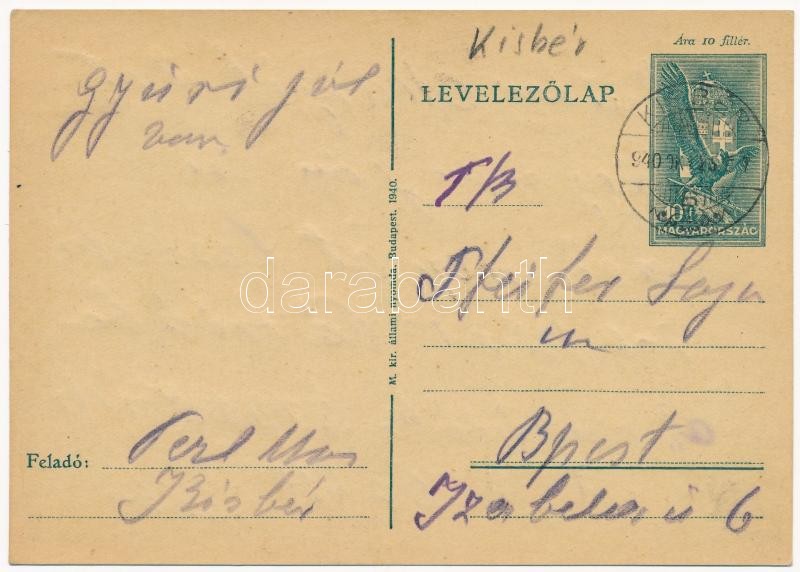 Kisbér
Ára 10 fillér.
Gyuri jól
van
LEVELEZŐLAP
KISBÉR
940
10 f
MAGYARORSZÁG
T/B
Pfeifer Lajos
M. kir. állami nyomda, Budapest. 1940.
darabanth
Feladó:
Perl
Kisbér
Bpest
Izabella u 6